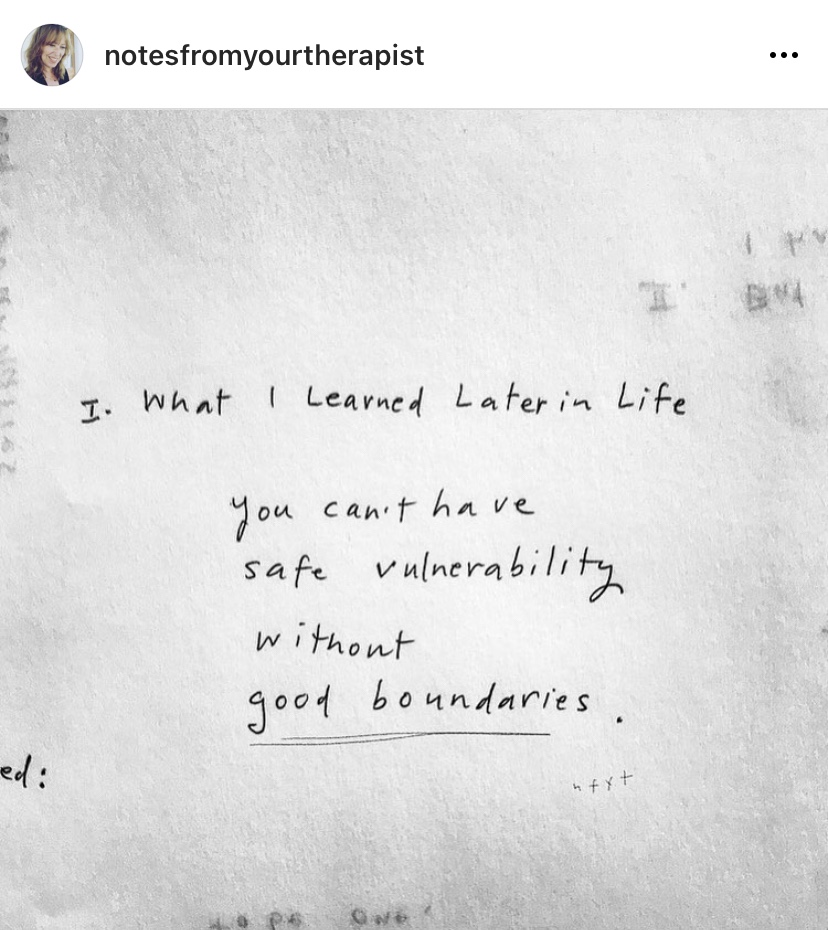 notesfromyourtherapist
I. What I Learned Later in Life
you can't have
safe vulnerability
without
good boundaries.
ed:
nfyt